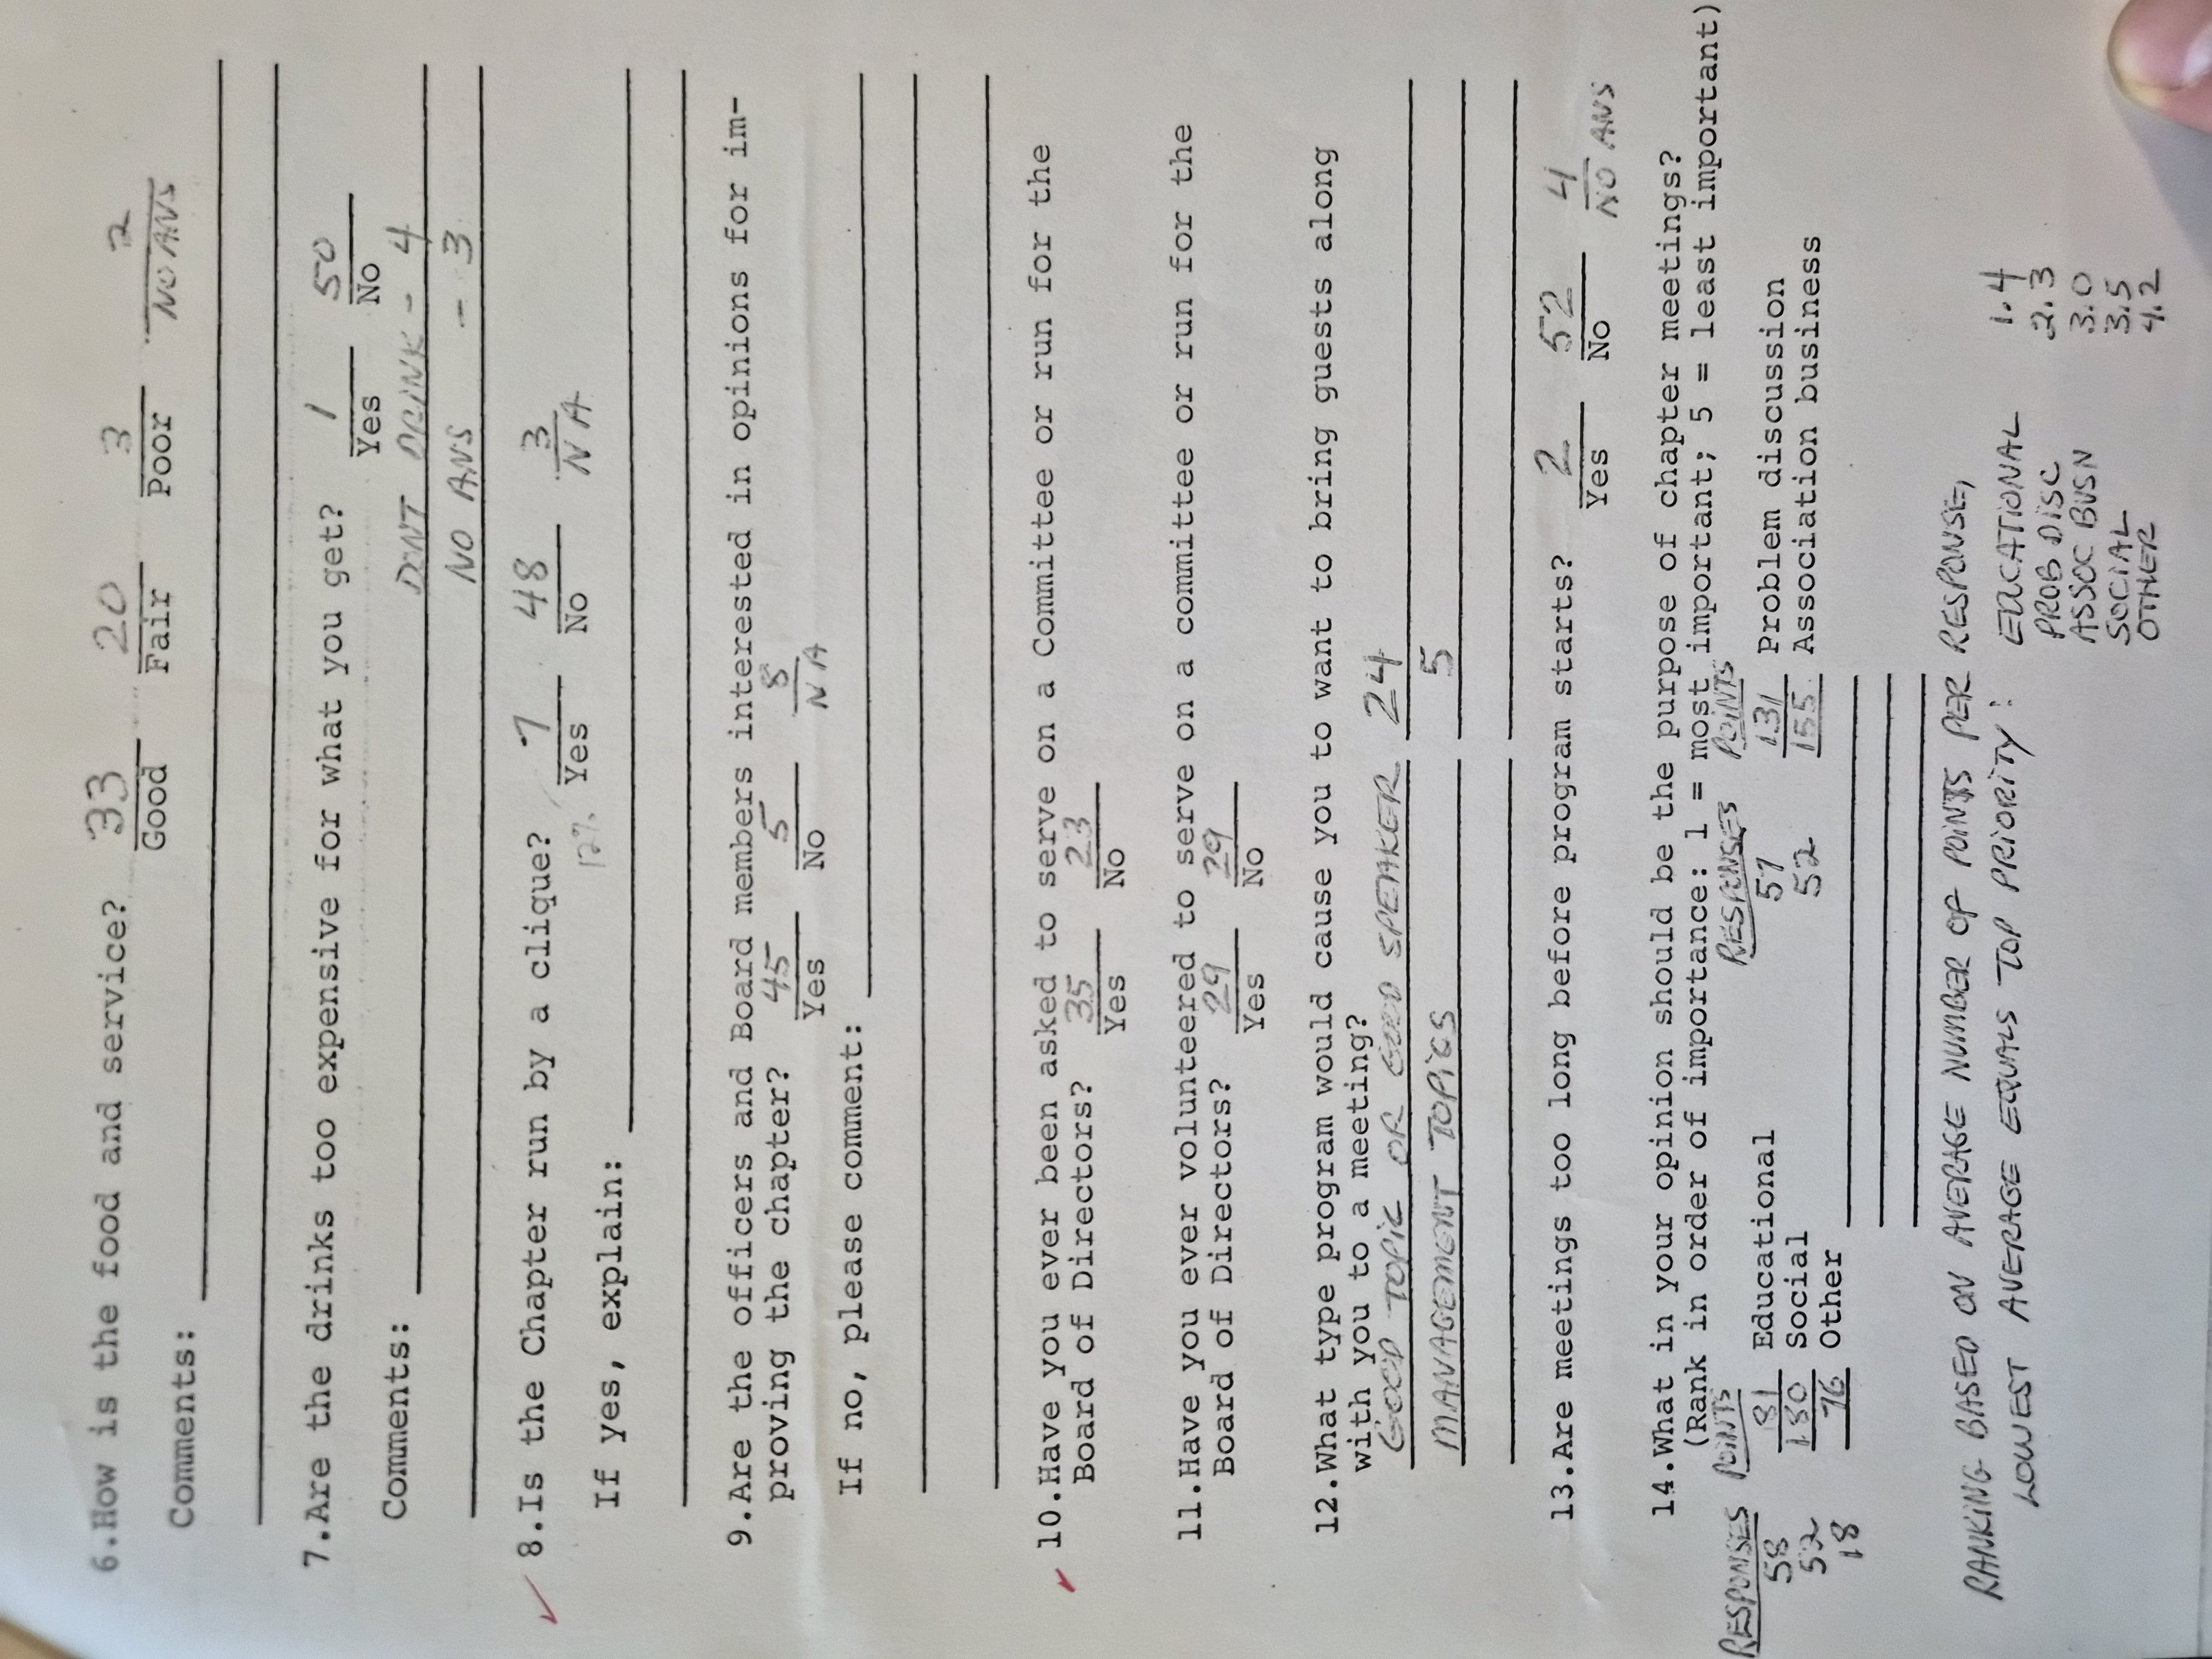 6.How is the food and service? 33 20 3 2
Good Fair Poor NO ANS
Comments:
7.Are the drinks too expensive for what you get? 1 50
Yes No
Comments: DONT DRINK - 4
NO ANS - 3
8.Is the Chapter run by a clique? 7 48 3
12% Yes No N A
If yes, explain:
9.Are the officers and Board members interested in opinions for im-
proving the chapter? 45 5 8
Yes No N A
If no, please comment:
10.Have you ever been asked to serve on a Committee or run for the
Board of Directors? 35 23
Yes No
11.Have you ever volunteered to serve on a committee or run for the
Board of Directors? 29 29
Yes No
12.What type program would cause you to want to bring guests along
with you to a meeting?
GOOD TOPIC OR GOOD SPEAKER 24
MANAGEMENT TOPICS 5
13.Are meetings too long before program starts? 2 52 4
Yes No NO ANS
14.What in your opinion should be the purpose of chapter meetings?
(Rank in order of importance: 1 = most important; 5 = least important)
RESPONSES POINTS RESPONSES POINTS
58 81 Educational 57 131 Problem discussion
52 180 Social 52 155 Association business
18 76 Other
RANKING BASED ON AVERAGE NUMBER OF POINTS PER RESPONSE,
LOWEST AVERAGE EQUALS TOP PRIORITY: EDUCATIONAL 1.4
PROB DISC 2.3
ASSOC BUSN 3.0
SOCIAL 3.5
OTHER 4.2